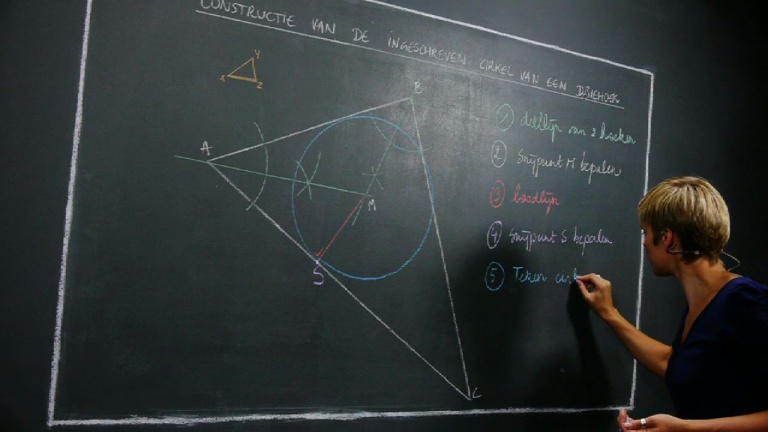 CONSTRUCTIE VAN DE INGESCHREVEN CIRKEL VAN EEN DRIEHOEK
Y
X
Z
B
A
M
S
C
① deellijn van 2 hoeken
② Snijpunt M bepalen
③ loodlijn
④ Snijpunt S bepalen
⑤ Teken cirk